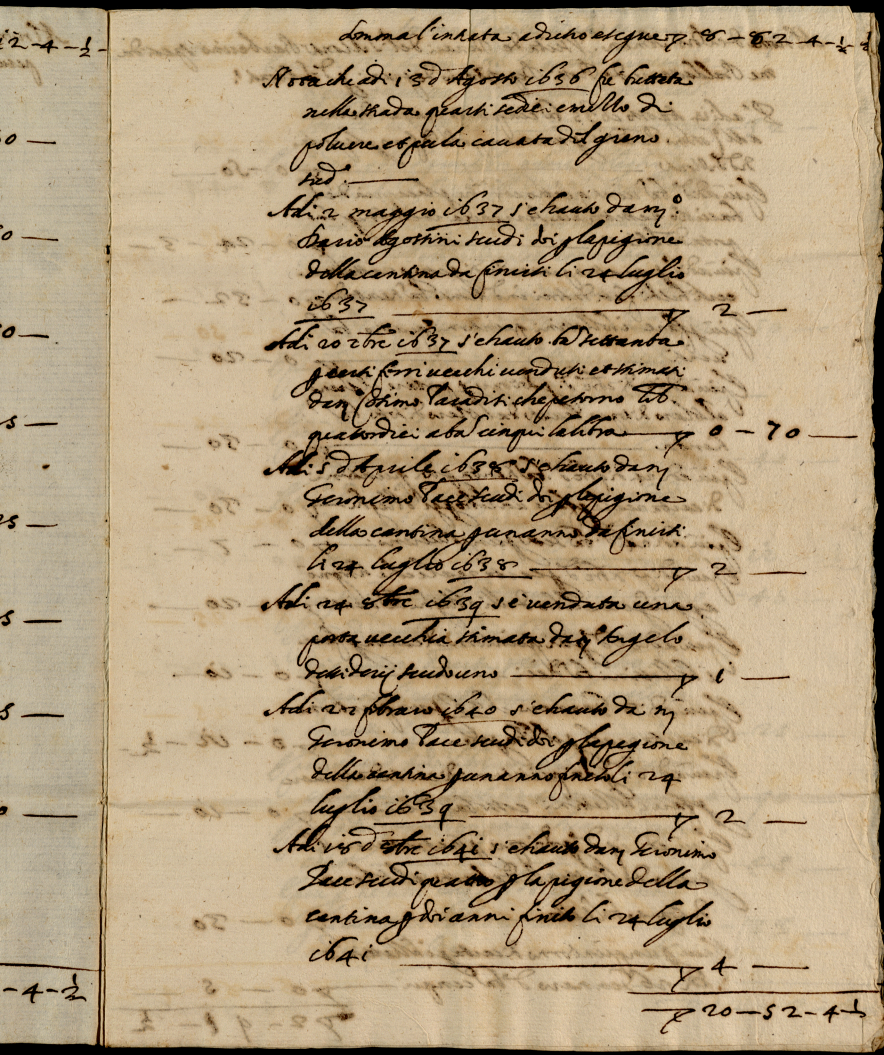 12-4-½
Somma l'intrata adrieto et segue ▽ 8-82-4-½
Nota che adi 13 d'Agosto 1636 fu buttata
nella strada quarti sedici e mezzo di
poluere et per la cauata del grano
sud.º
Adi 2 maggio 1637 s'è hauto da m.º
Dario Agostini scudi doi p la pigione
della cantina da finirsi li 24 luglio
1637 ▽ 2 —
Adi 20 xbre 1637 s'è hauto b. settanta
p certi ferri uecchi uenduti et stimati
da m. Cosimo che pesorno lib.
quatordici a b. cinque la libra ▽ 0-70 —
Adi 5 d'Aprile 1638 s'è hauto da m.
Geronimo Pace scudi doi p la pigione
della cantina p un anno da finirsi
li 24 luglio 1638 ▽ 2 —
Adi 24 8bre 1639 s'è venduta una
porta uecchia stimata da m.º Angelo
desiderij scudo uno ▽ 1 —
Adi 22 febraro 1640 s'è hauto da m.
Geronimo Pace scudi doi p la pigione
della cantina p un anno finito li 24
luglio 1639 ▽ 2 —
Adi 18 d' 8bre 1641 s'è hauto da m. Geronimo
Pace scudi quattro p la pigione della
cantina p doi anni finito li 24 luglio
1641 ▽ 4 —
▽ 20-52-4-½
-4-½